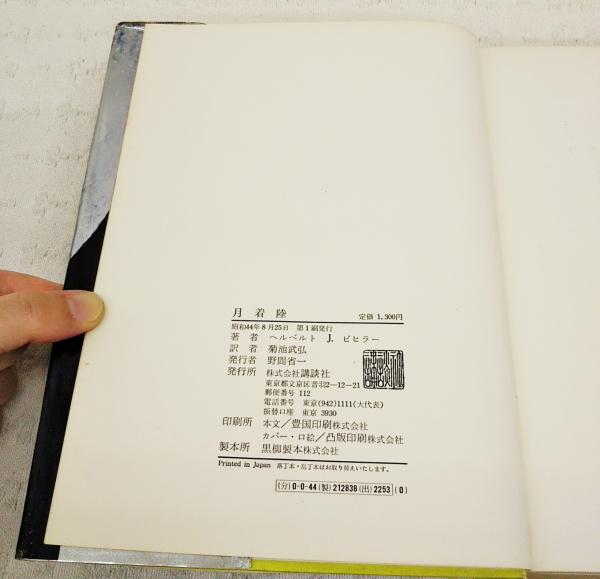 月着陸 定価 1,300円
昭和44年8月25日 第1刷発行
著者 ヘルベルト J. ピヒラー
訳者 菊池武弘
発行者 野間省一
発行所 株式会社講談社
東京都文京区音羽2—12—21
郵便番号 112
電話番号 東京(942)1111(大代表)
振替口座 東京 3930
印刷所 本文/豊国印刷株式会社
カバー・口絵/凸版印刷株式会社
製本所 黒柳製本株式会社
Printed in Japan 落丁本・乱丁本はお取り替えいたします。
(分)0-0-44(製)212838(出)2253(0)